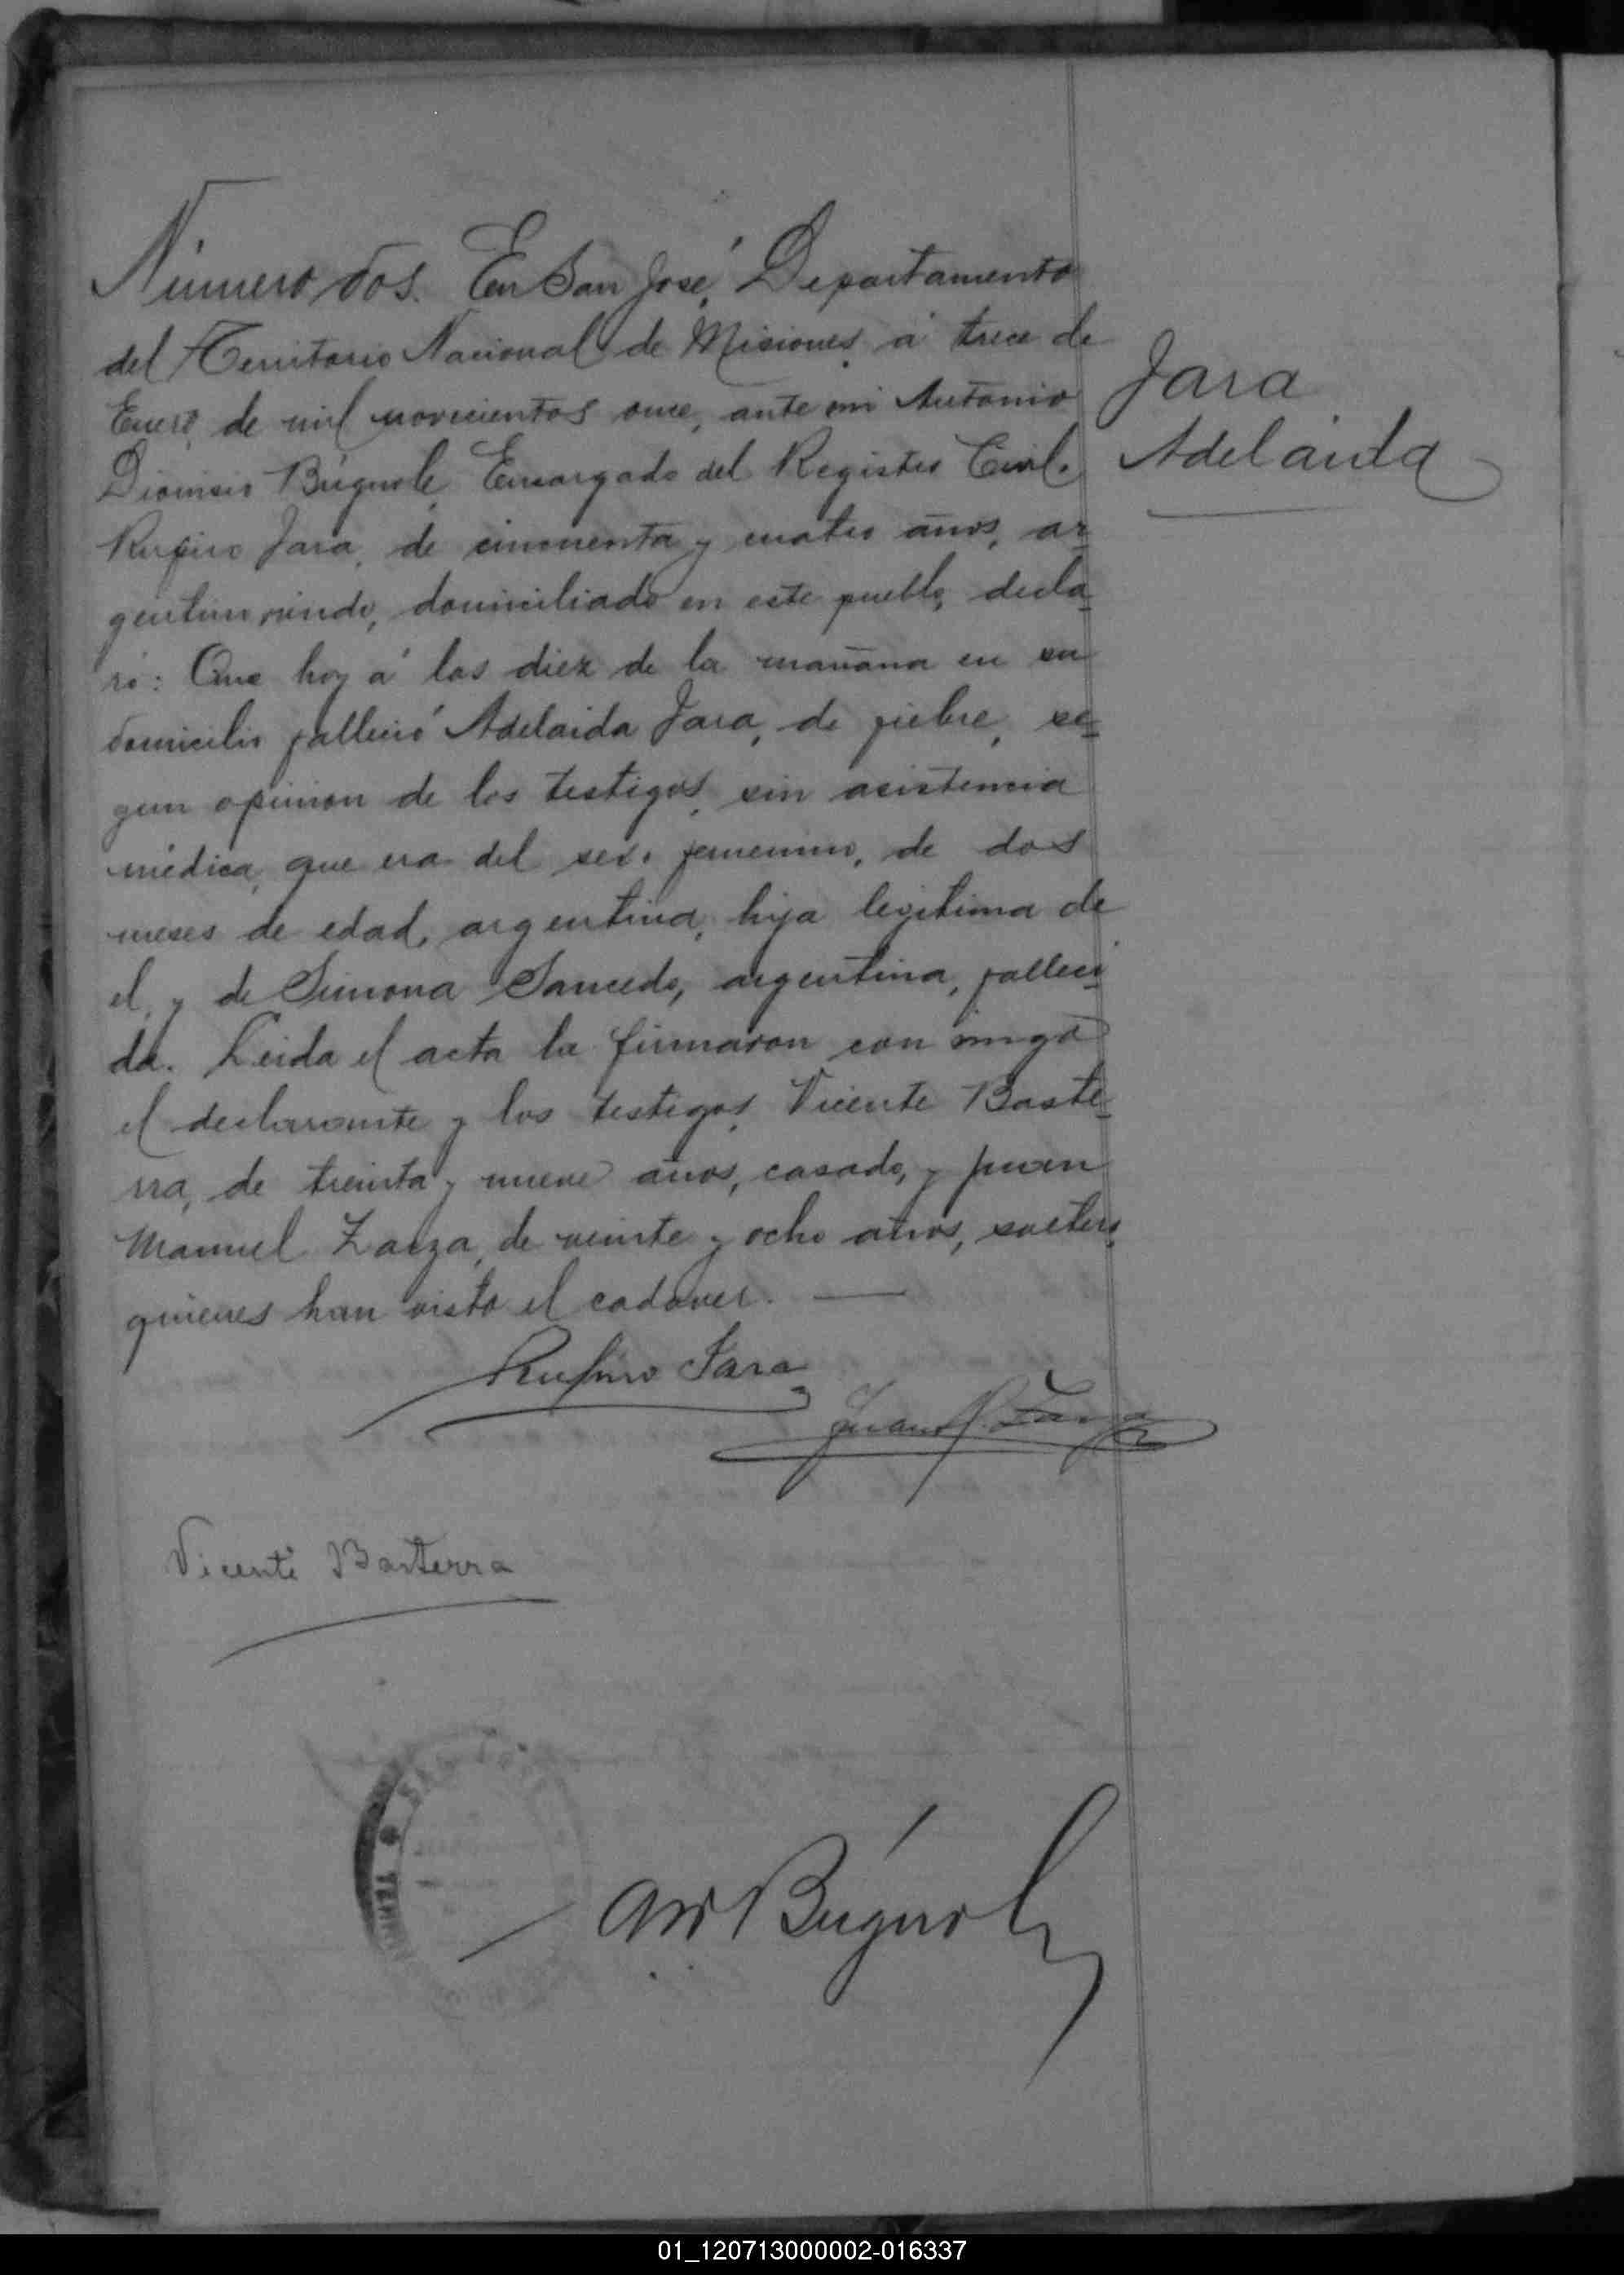 Número dos. En San José, Departamento
del Territorio Nacional de Misiones á trece de
Enero de mil novecientos once, ante mi Antonio
Dionisio Búgnole, Encargado del Registro Civil.
Rufino Jara, de cincuenta y cuatro años, ar-
gentino, viudo, domiciliado en este pueblo, decla-
ró: Que hoy á las diez de la mañana en su
domicilio falleció Adelaida Jara, de fiebre, se-
gun opinion de los testigos, sin asistencia
médica, que era del sexo femenino, de dos
meses de edad, argentina, hija legitima de
el, y de Simona Saucedo, argentina, falleci-
da. Leida el acta la firmaron con migo
el declarante y los testigos, Vicente Baste-
rra, de treinta y nueve años, casado, y Juan
Manuel Zarza, de veinte y ocho años, soltero,
quienes han visto el cadaver.
Jara
Adelaida
Rufino Jara
Juan M. Zarza
Vicente Basterra
SAN JOSE
TERRI
Búgnole
01_120713000002-016337